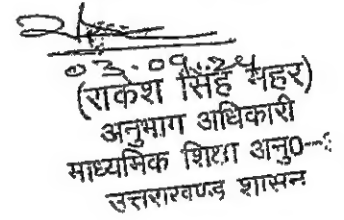 03.09.24
(राकेश सिंह महर)
अनुभाग अधिकारी
माध्यमिक शिक्षा अनु०
उत्तराखण्ड शासन